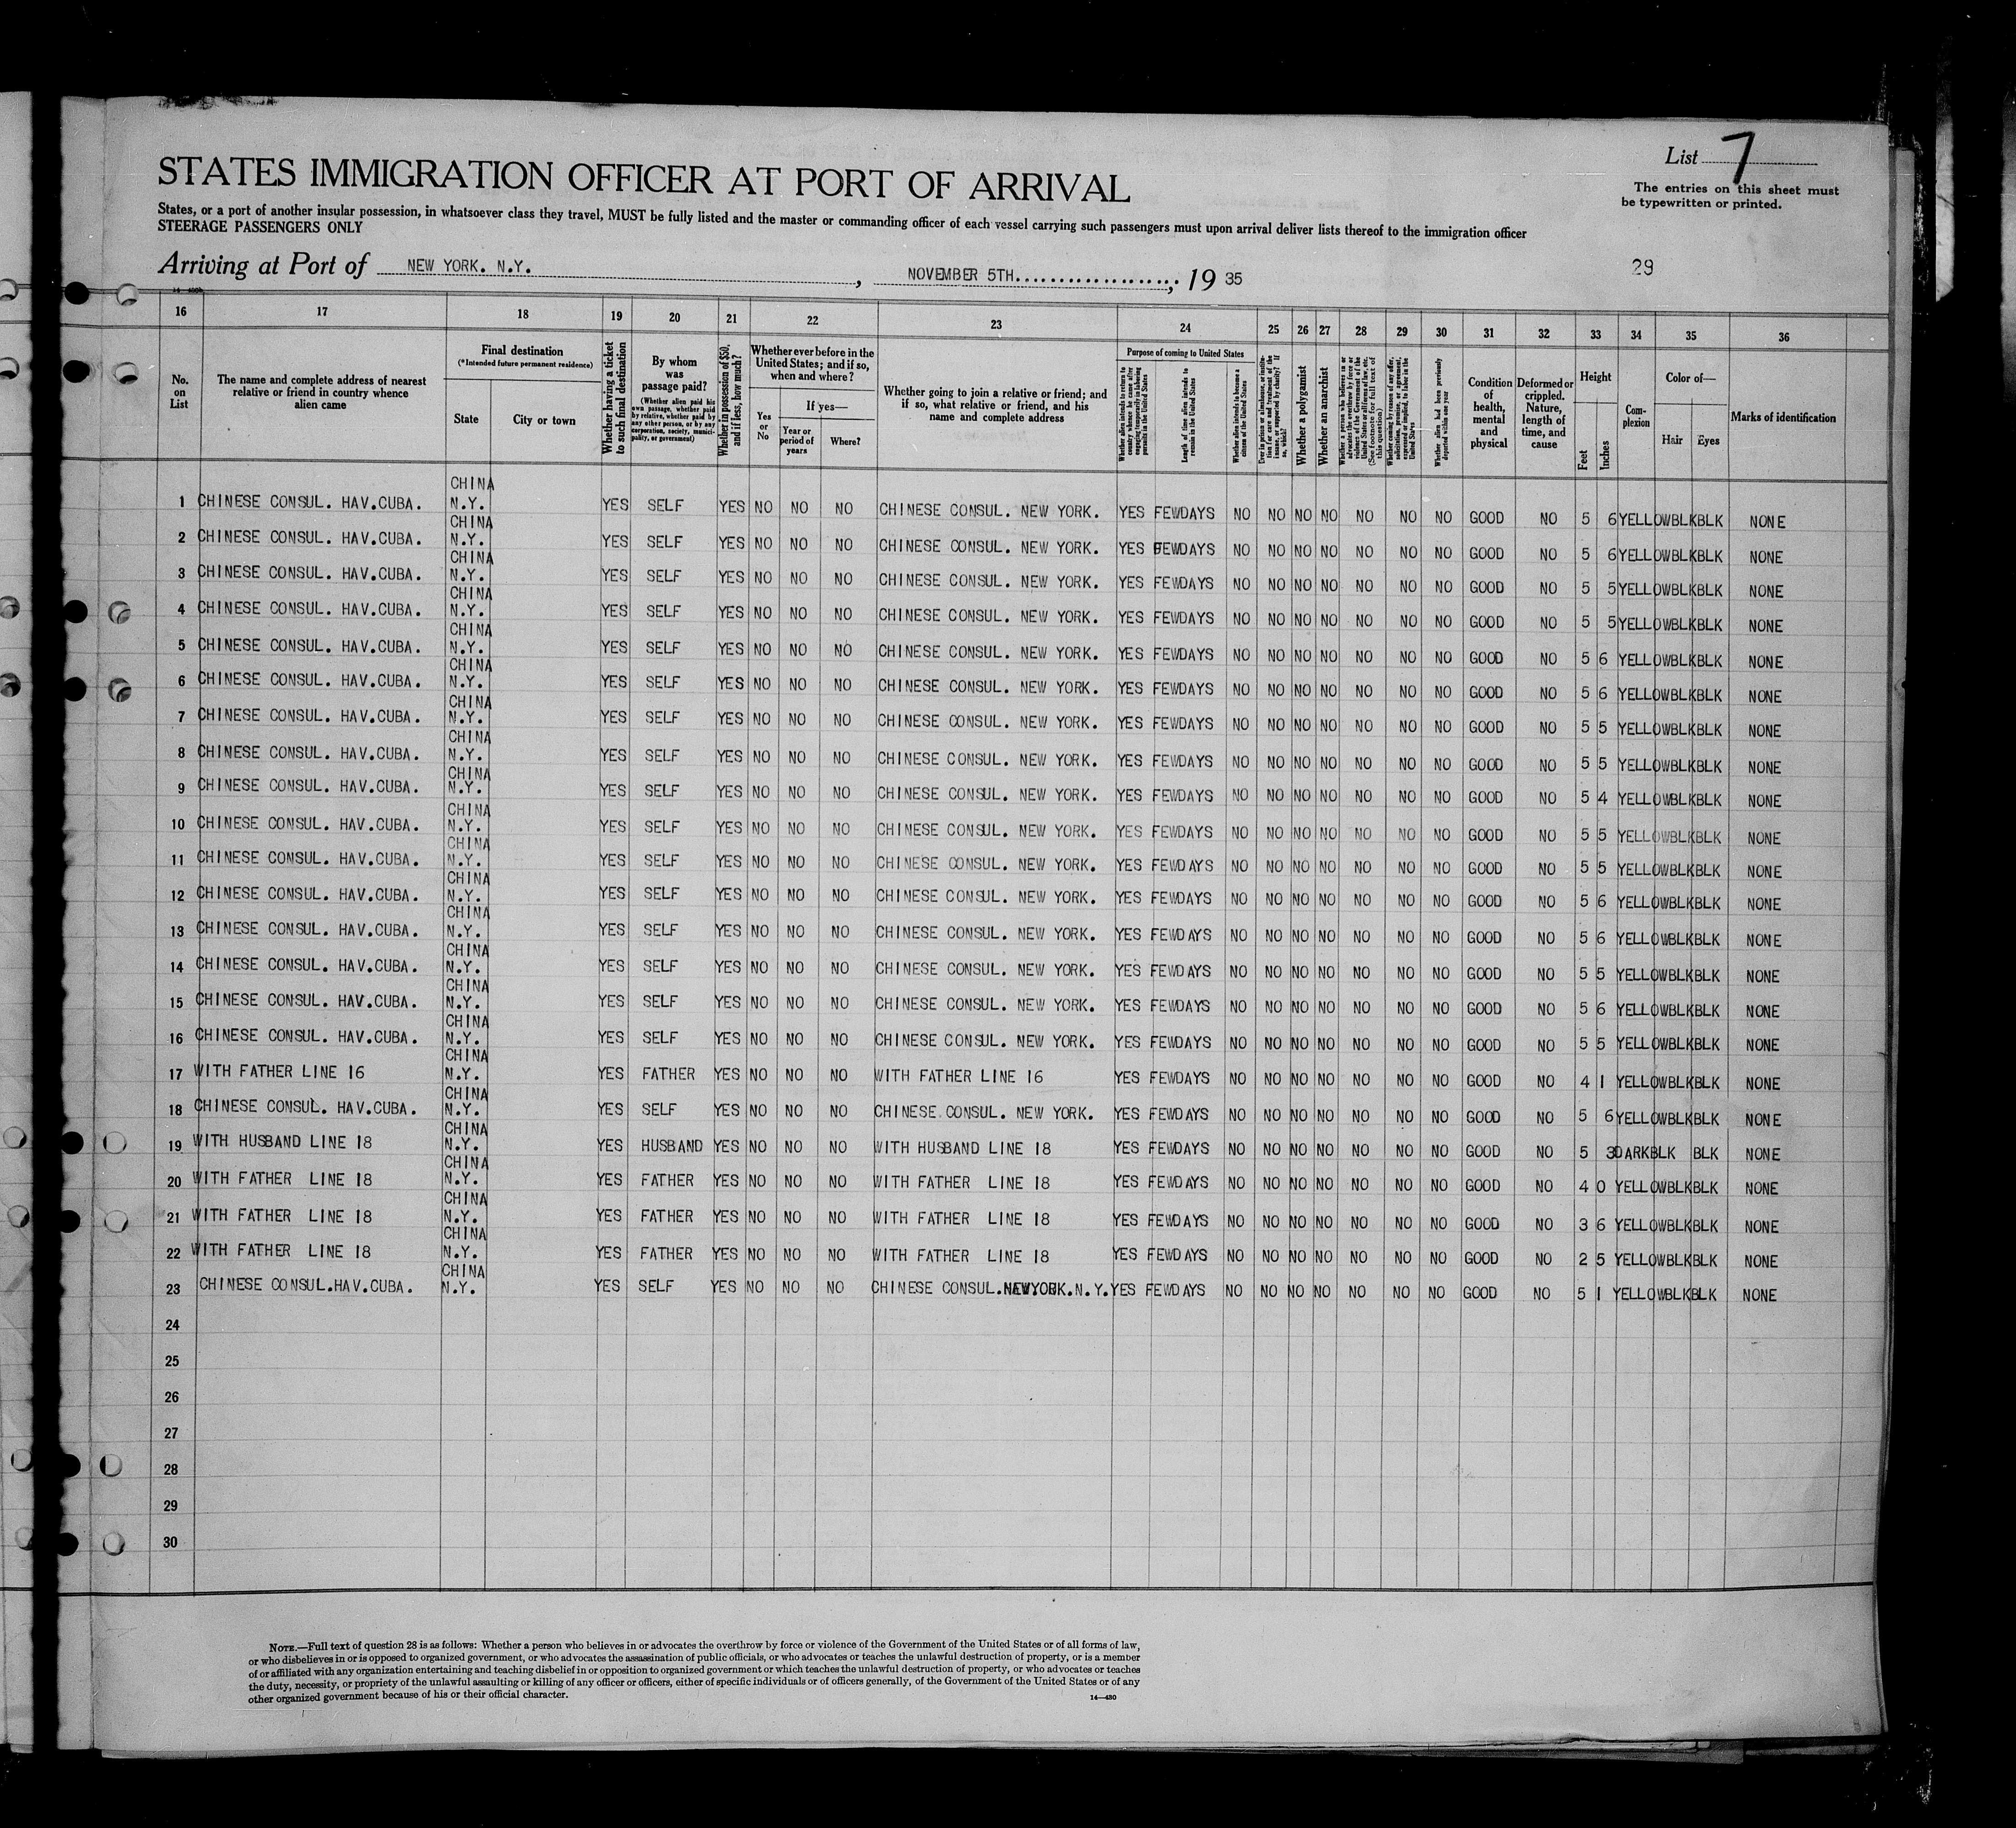 List 7
The entries on this sheet must
be typewritten or printed.
STATES IMMIGRATION OFFICER AT PORT OF ARRIVAL
States, or a port of another insular possession, in whatsoever class they travel, MUST be fully listed and the master or commanding officer of each vessel carrying such passengers must upon arrival deliver lists thereof to the immigration officer
STEERAGE PASSENGERS ONLY
Arriving at Port of NEW YORK. N.Y., NOVEMBER 5TH, 19 35
29
16 17 18 19 20 21 22 23 24 25 26 27 28 29 30 31 32 33 34 35 36
No. on List
The name and complete address of nearest relative or friend in country whence alien came
Final destination
(*Intended future permanent residence)
State
City or town
Whether having a ticket to such final destination
By whom was passage paid?
(Whether alien paid his own passage, whether paid by relative, whether paid by any other person, or by any corporation, society, municipality, or government)
Whether in possession of $50, and if less, how much?
Whether ever before in the United States; and if so, when and where?
Yes or No
If yes—
Year or period of years
Where?
Whether going to join a relative or friend; and if so, what relative or friend, and his name and complete address
Purpose of coming to United States
Whether alien intends to return to country whence he came after engaging temporarily in laboring pursuits in the United States
Length of time alien intends to remain in the United States
Whether alien intends to become a citizen of the United States
Whether a polygamist
Whether an anarchist
Whether alien had been previously deported within one year
Condition of health, mental and physical
Deformed or crippled. Nature, length of time, and cause
Height
Feet
Inches
Complexion
Color of—
Hair
Eyes
Marks of identification
1 CHINESE CONSUL. HAV.CUBA. CHINA N.Y. YES SELF YES NO NO NO CHINESE CONSUL. NEW YORK. YES FEWDAYS NO NO NO NO NO NO NO GOOD NO 5 6 YELLOW BLK BLK NONE
2 CHINESE CONSUL. HAV.CUBA. CHINA N.Y. YES SELF YES NO NO NO CHINESE CONSUL. NEW YORK. YES FEWDAYS NO NO NO NO NO NO NO GOOD NO 5 6 YELLOW BLK BLK NONE
3 CHINESE CONSUL. HAV.CUBA. CHINA N.Y. YES SELF YES NO NO NO CHINESE CONSUL. NEW YORK. YES FEWDAYS NO NO NO NO NO NO NO GOOD NO 5 5 YELLOW BLK BLK NONE
4 CHINESE CONSUL. HAV.CUBA. CHINA N.Y. YES SELF YES NO NO NO CHINESE CONSUL. NEW YORK. YES FEWDAYS NO NO NO NO NO NO NO GOOD NO 5 5 YELLOW BLK BLK NONE
5 CHINESE CONSUL. HAV.CUBA. CHINA N.Y. YES SELF YES NO NO NO CHINESE CONSUL. NEW YORK. YES FEWDAYS NO NO NO NO NO NO NO GOOD NO 5 6 YELLOW BLK BLK NONE
6 CHINESE CONSUL. HAV.CUBA. CHINA N.Y. YES SELF YES NO NO NO CHINESE CONSUL. NEW YORK. YES FEWDAYS NO NO NO NO NO NO NO GOOD NO 5 6 YELLOW BLK BLK NONE
7 CHINESE CONSUL. HAV.CUBA. CHINA N.Y. YES SELF YES NO NO NO CHINESE CONSUL. NEW YORK. YES FEWDAYS NO NO NO NO NO NO NO GOOD NO 5 5 YELLOW BLK BLK NONE
8 CHINESE CONSUL. HAV.CUBA. CHINA N.Y. YES SELF YES NO NO NO CHINESE CONSUL. NEW YORK. YES FEWDAYS NO NO NO NO NO NO NO GOOD NO 5 5 YELLOW BLK BLK NONE
9 CHINESE CONSUL. HAV.CUBA. CHINA N.Y. YES SELF YES NO NO NO CHINESE CONSUL. NEW YORK. YES FEWDAYS NO NO NO NO NO NO NO GOOD NO 5 4 YELLOW BLK BLK NONE
10 CHINESE CONSUL. HAV.CUBA. CHINA N.Y. YES SELF YES NO NO NO CHINESE CONSUL. NEW YORK. YES FEWDAYS NO NO NO NO NO NO NO GOOD NO 5 5 YELLOW BLK BLK NONE
11 CHINESE CONSUL. HAV.CUBA. CHINA N.Y. YES SELF YES NO NO NO CHINESE CONSUL. NEW YORK. YES FEWDAYS NO NO NO NO NO NO NO GOOD NO 5 5 YELLOW BLK BLK NONE
12 CHINESE CONSUL. HAV.CUBA. CHINA N.Y. YES SELF YES NO NO NO CHINESE CONSUL. NEW YORK. YES FEWDAYS NO NO NO NO NO NO NO GOOD NO 5 6 YELLOW BLK BLK NONE
13 CHINESE CONSUL. HAV.CUBA. CHINA N.Y. YES SELF YES NO NO NO CHINESE CONSUL. NEW YORK. YES FEWDAYS NO NO NO NO NO NO NO GOOD NO 5 6 YELLOW BLK BLK NONE
14 CHINESE CONSUL. HAV.CUBA. CHINA N.Y. YES SELF YES NO NO NO CHINESE CONSUL. NEW YORK. YES FEWDAYS NO NO NO NO NO NO NO GOOD NO 5 5 YELLOW BLK BLK NONE
15 CHINESE CONSUL. HAV.CUBA. CHINA N.Y. YES SELF YES NO NO NO CHINESE CONSUL. NEW YORK. YES FEWDAYS NO NO NO NO NO NO NO GOOD NO 5 6 YELLOW BLK BLK NONE
16 CHINESE CONSUL. HAV.CUBA. CHINA N.Y. YES SELF YES NO NO NO CHINESE CONSUL. NEW YORK. YES FEWDAYS NO NO NO NO NO NO NO GOOD NO 5 5 YELLOW BLK BLK NONE
17 WITH FATHER LINE 16 CHINA N.Y. YES FATHER YES NO NO NO WITH FATHER LINE 16 YES FEWDAYS NO NO NO NO NO NO NO GOOD NO 4 1 YELLOW BLK BLK NONE
18 CHINESE CONSUL. HAV.CUBA. CHINA N.Y. YES SELF YES NO NO NO CHINESE CONSUL. NEW YORK. YES FEWDAYS NO NO NO NO NO NO NO GOOD NO 5 6 YELLOW BLK BLK NONE
19 WITH HUSBAND LINE 18 CHINA N.Y. YES HUSBAND YES NO NO NO WITH HUSBAND LINE 18 YES FEWDAYS NO NO NO NO NO NO NO GOOD NO 5 3 DARK BLK BLK NONE
20 WITH FATHER LINE 18 CHINA N.Y. YES FATHER YES NO NO NO WITH FATHER LINE 18 YES FEWDAYS NO NO NO NO NO NO NO GOOD NO 4 0 YELLOW BLK BLK NONE
21 WITH FATHER LINE 18 CHINA N.Y. YES FATHER YES NO NO NO WITH FATHER LINE 18 YES FEWDAYS NO NO NO NO NO NO NO GOOD NO 3 6 YELLOW BLK BLK NONE
22 WITH FATHER LINE 18 CHINA N.Y. YES FATHER YES NO NO NO WITH FATHER LINE 18 YES FEWDAYS NO NO NO NO NO NO NO GOOD NO 2 5 YELLOW BLK BLK NONE
23 CHINESE CONSUL.HAV.CUBA. CHINA N.Y. YES SELF YES NO NO NO CHINESE CONSUL.NEWYORK.N.Y. YES FEWDAYS NO NO NO NO NO NO NO GOOD NO 5 1 YELLOW BLK BLK NONE
24
25
26
27
28
29
30
NOTE.—Full text of question 28 is as follows: Whether a person who believes in or advocates the overthrow by force or violence of the Government of the United States or of all forms of law,
or who disbelieves in or is opposed to organized government, or who advocates the assassination of public officials, or who advocates or teaches the unlawful destruction of property, or is a member
of or affiliated with any organization entertaining and teaching disbelief in or opposition to organized government or which teaches the unlawful destruction of property, or who advocates or teaches
the duty, necessity, or propriety of the unlawful assaulting or killing of any officer or officers, either of specific individuals or of officers generally, of the Government of the United States or of any
other organized government because of his or their official character.
14—430